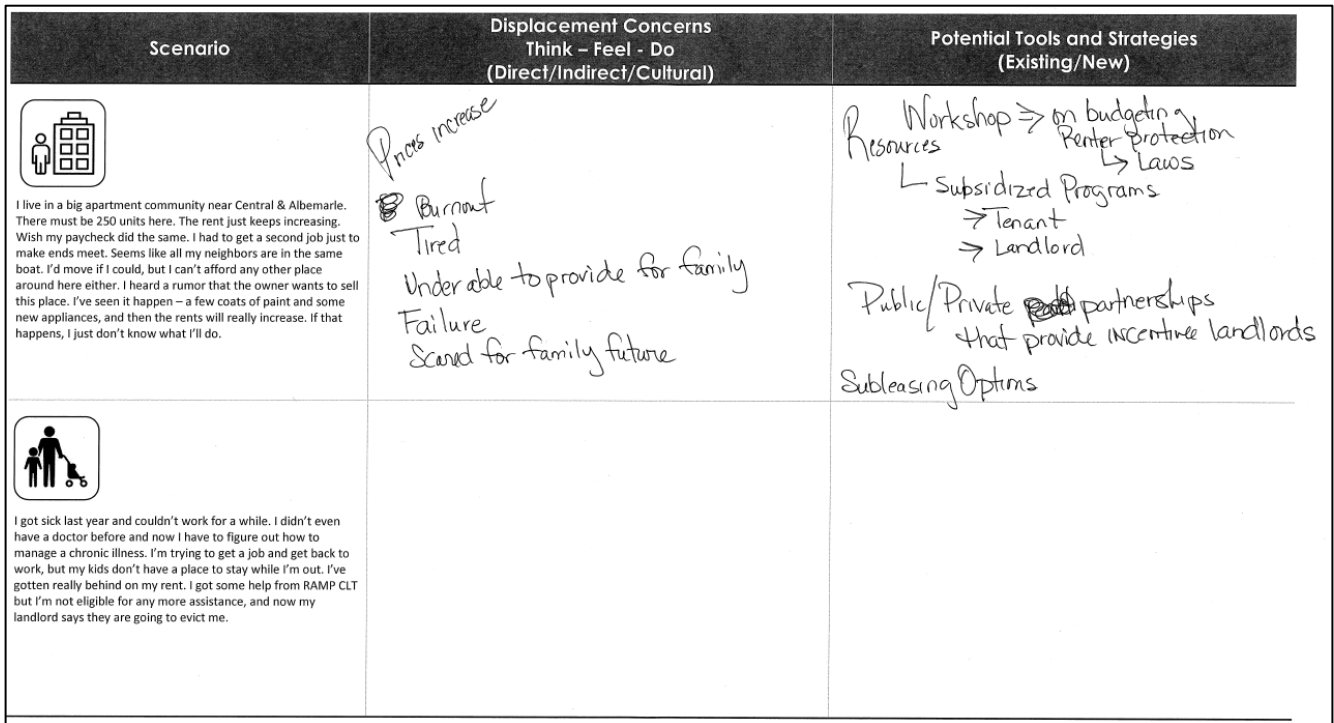 Scenario
Displacement Concerns
Think – Feel - Do
(Direct/Indirect/Cultural)
Potential Tools and Strategies
(Existing/New)
I live in a big apartment community near Central & Albemarle.
There must be 250 units here. The rent just keeps increasing.
Wish my paycheck did the same. I had to get a second job just to
make ends meet. Seems like all my neighbors are in the same
boat. I'd move if I could, but I can't afford any other place
around here either. I heard a rumor that the owner wants to sell
this place. I've seen it happen – a few coats of paint and some
new appliances, and then the rents will really increase. If that
happens, I just don't know what I'll do.
Prices increase
Burnout
Tired
Under able to provide for family
Failure
Scared for family future
Workshop ⇒ on budgeting
Renter Protection
↳ Laws
Resources
└ Subsidized Programs
⇒ Tenant
⇒ Landlord
Public/Private partnerships
that provide incentive landlords
Subleasing Options
I got sick last year and couldn't work for a while. I didn't even
have a doctor before and now I have to figure out how to
manage a chronic illness. I'm trying to get a job and get back to
work, but my kids don't have a place to stay while I'm out. I've
gotten really behind on my rent. I got some help from RAMP CLT
but I'm not eligible for any more assistance, and now my
landlord says they are going to evict me.